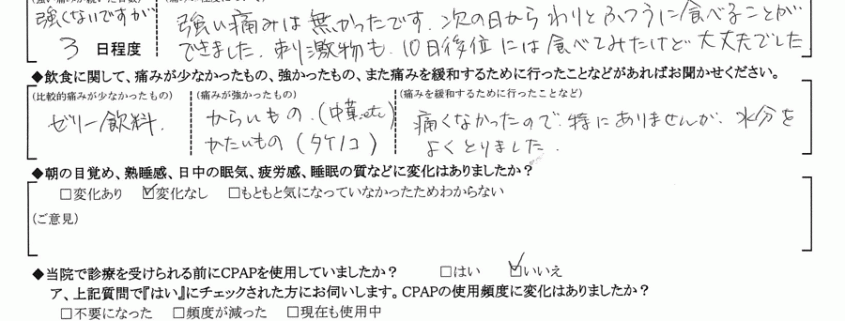 強くないですが
3 日程度
強い痛みは無かったです。次の日からわりとふつうに食べることが
できました。刺激物も、10日後位には食べてみたけど大丈夫でした
◆飲食に関して、痛みが少なかったもの、強かったもの、また痛みを緩和するために行ったことなどがあればお聞かせください。
(比較的痛みが少なかったもの)
(痛みが強かったもの)
(痛みを緩和するために行ったことなど)
ゼリー飲料.
からいもの.(中華.etc)
かたいもの(タケノコ)
痛くなかったので、特にありませんが、水分を
よくとりました.
◆朝の目覚め、熟睡感、日中の眠気、疲労感、睡眠の質などに変化はありましたか?
□変化あり ☑変化なし □もともと気になっていなかったためわからない
(ご意見)
◆当院で診療を受けられる前にCPAPを使用していましたか? □はい ☑いいえ
ア、上記質問で『はい』にチェックされた方にお伺いします。CPAPの使用頻度に変化はありましたか?
□不要になった □頻度が減った □現在も使用中